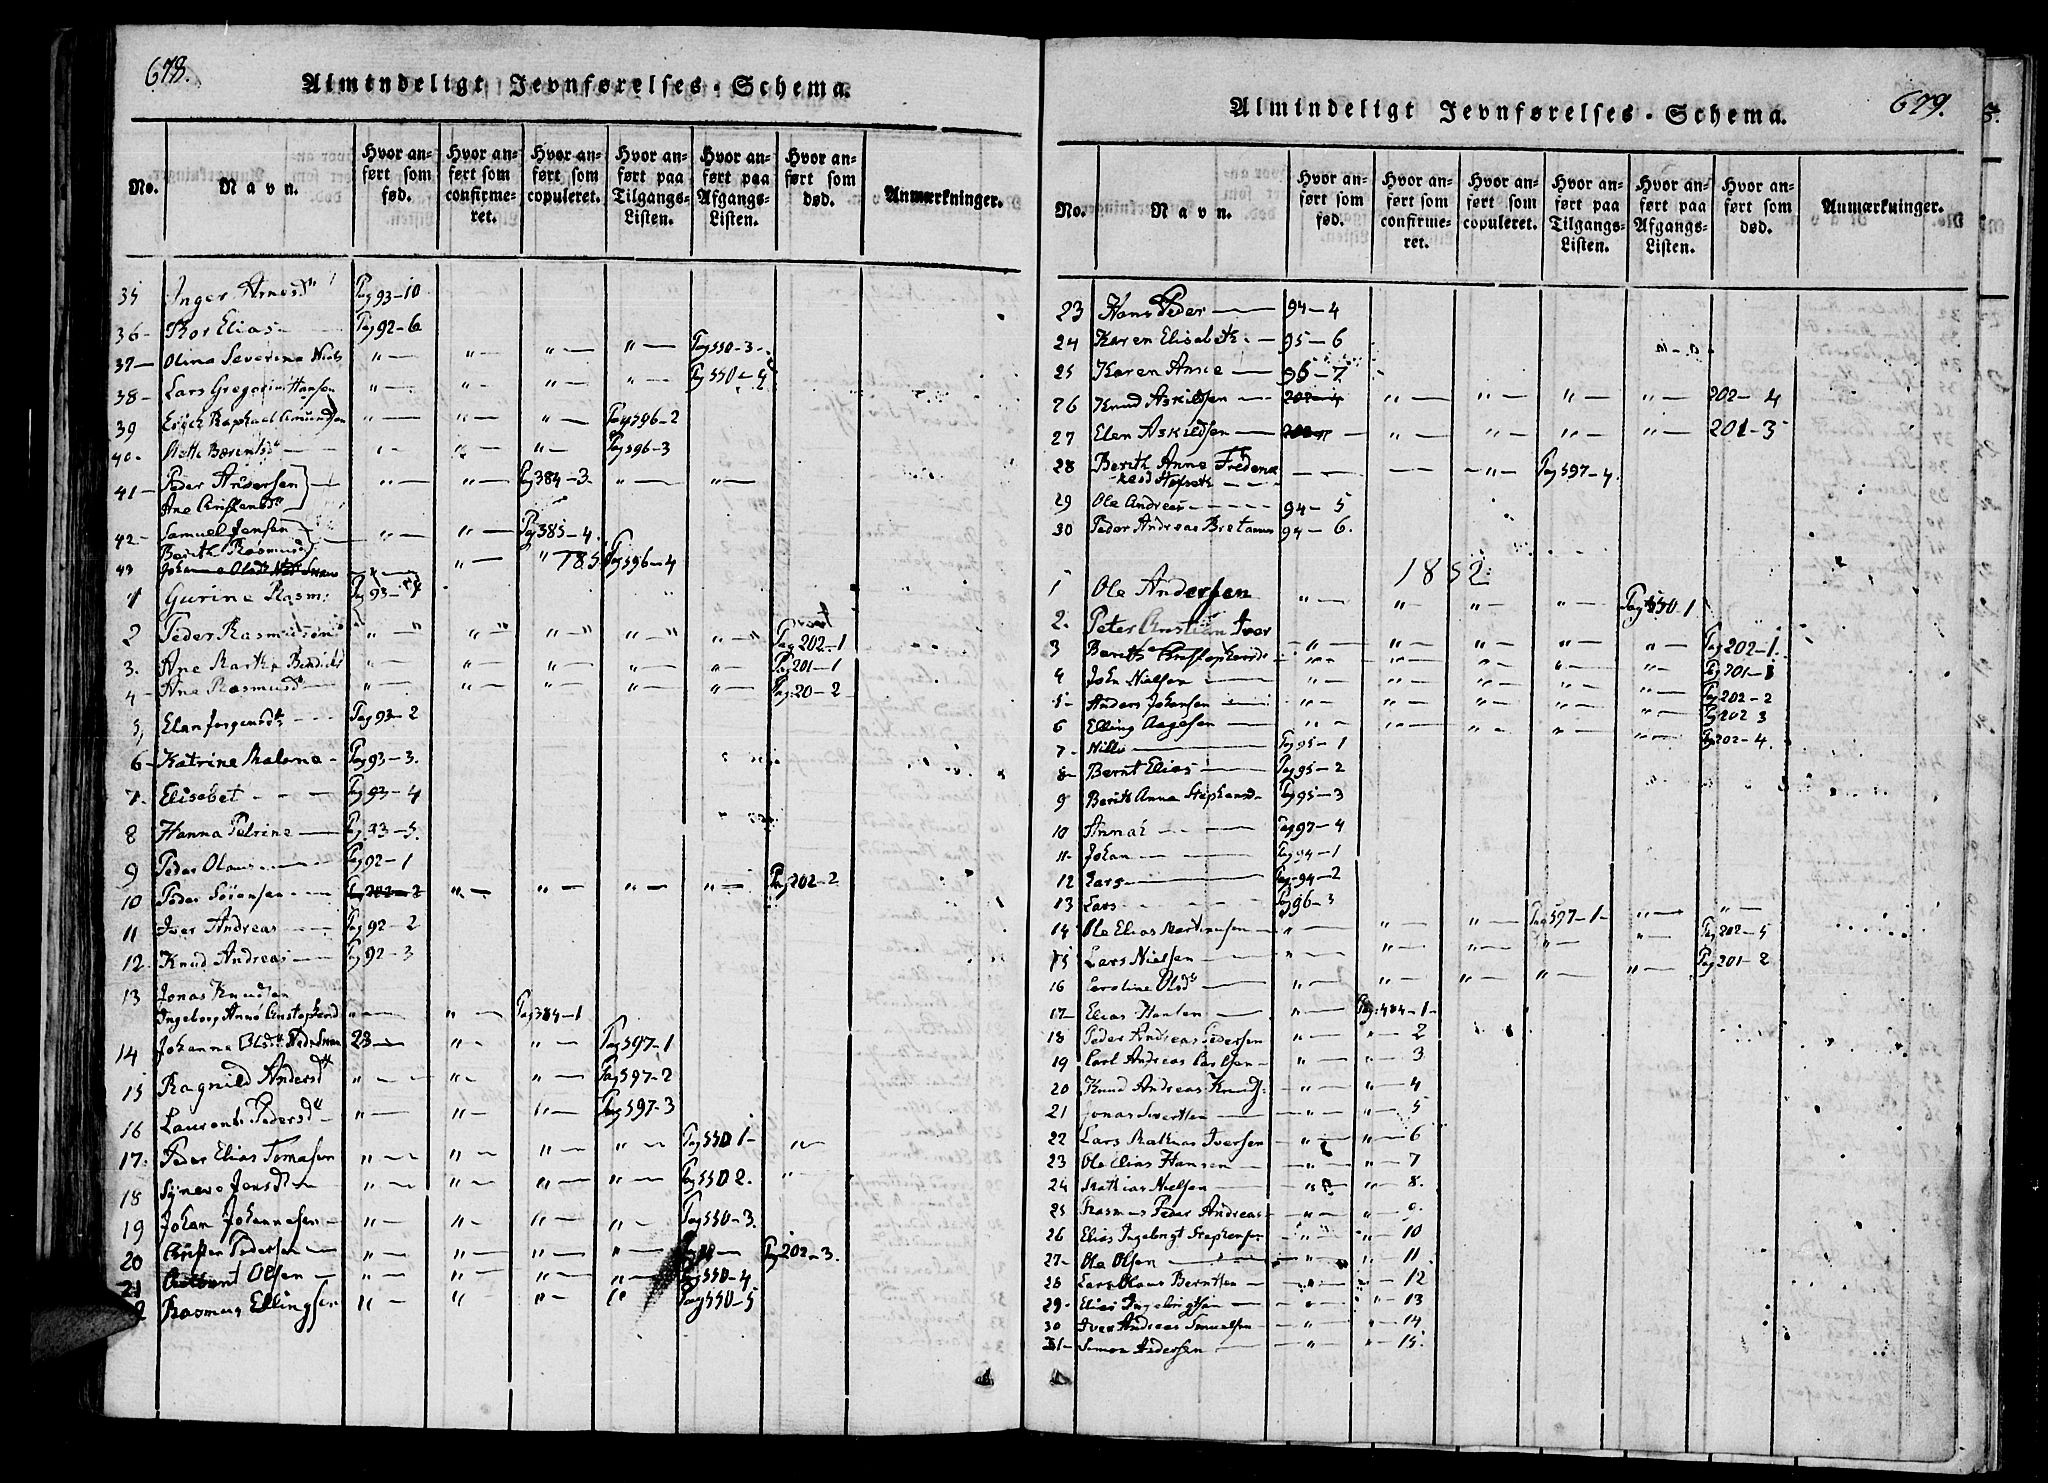 678.
Almindeligt Jevnførelses-Schema.
No. Navn. Hvor anført som fød. Hvor anført som confirmeret. Hvor anført som copuleret. Hvor anført paa Tilgangs-Listen. Hvor anført paa Afgangs-Listen. Hvor anført som død. Anmærkninger.
35 Inger Pag 93-10
36- Thor Elias Pag 92-6
37- Olina Severine Niels " " " " Pag 550-3-
38- Lars Gregorius Hansen " " " " Pag 550-4
39 Raphael Amundsen " " " Pag 596-2
40- " " " Pag 596-3
41- Peder Andersen " " Pag 384-3. " "
Ane
42- Samuel Jensen " " Pag 385-4.
Berith Rasmusd
43 Johanne Olsd " " 185 Pag 596-4
1 Gurine Rasm: Pag 93-
2 Peder Rasmusson " " " " " Pag 202-1
3. Ane Martha Bendicts " " " " " Pag 201-1
4- Ane Rasmusd " " " " " Pag 20-2
5, Elen Jørgensd Pag 93-2
6- Katrine Malene - Pag 93-3.
7- Elisabet Pag 93-4
8 Hanna Petrine Pag 93-5.
9 Peder Olaus Pag 92-1
10 Peder Sørensen Pag 202-2 " " " " Pag 202-2
11 Iver Andreas Pag 92-2
12- Knud Andreas Pag 92-3
13 Jonas Knudsen
Ingeborg Anne " " Pag 384-1
14 Johanne Olsd 23 " " Pag 597-1
15 Ragnild Andersd " " " Pag 597-2
16 Pedersd " " " Pag 597-3
17- Peder Elias Tomasen " " " " Pag 550 1- "
18 Synneve Jensd " " " " Pag 550 2. "
19 Johan Johannesen " " " " Pag 550-3.
20 Christen Pedersen " " " " Pag 202-3.
21 Olsen " " " " Pag 550-4
Rasmus Ellingsen " " " " Pag 550-5
679.
Almindeligt Jevnførelses-Schema.
No. Navn. Hvor anført som fød. Hvor anført som confirmeret. Hvor anført som copuleret. Hvor anført paa Tilgangs-Listen. Hvor anført paa Afgangs-Listen. Hvor anført som død. Anmærkninger.
23 Hans Peder 94-4
24 Karen Elisabeth 95-6
25 Karen Anne 96-7
26 Knud Askildsen " " " " 202-4
27 Elen Askildsen " " " " 201-3
28 Berith Anne " Pag 597-4.
29 Ole Andreas 94-5
30 Peder Andreas 94-6.
1852
1 Ole Andersen " " " " Pag 550-1
2. Peter Christian Iver " " " " " Pag 202-1.
3 Berith Christophersd " " " " " Pag 201-1
4 John Nielsen " " " " " Pag 202-2
5- Anders Johansen " " " " " Pag 202 3
6 Elling Aagesen " " " " " Pag 202-4.
7- Nils Pag 95-1
8- Bernt Elias Pag 95-2
9 Berith Anna Stephansd Pag 95-3
10 Anna Pag 97-4
11- Johan Pag 94-1
12 Lars Pag 94-2
13 Lars Pag 96-3
14 Ole Elias Martinusen " " " Pag 597-1- " "
15 Lars Nielsen " " " " " Pag 202-5
16 Caroline Olsd " " " " " Pag 201-2
17- Elias Hansen " Pag. 484-1-
18 Peder Andreas Pedersen " " 2
19 Carl Andreas Carlsen " " 3
20 Knud Andreas Knuds: " " 4
21 Jonas Sivertsen " " 5
22 Lars Mathias Iversen " " 6
23 Ole Elias Hansen " " 7
24 Mathias Nielsen " " 8.
25 Rasmus Peder Andreas " " 9.
26 Elias Ingebrigt Stephansen " " 10
27- Ole Olsen " " 11.
28 Lars Olaus Berntsen " " 12
29- Elias Ingebrigtsen " " 13
30 Iver Andreas Samuelsen " " 14
31- Simon Andersen " " 15.